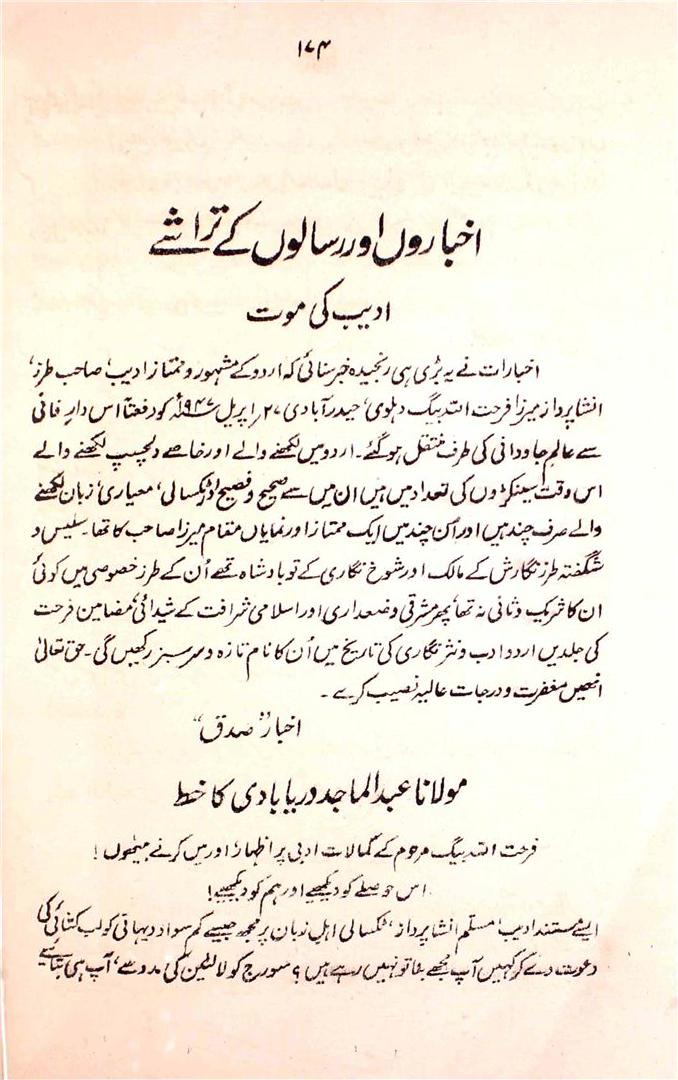 ۱۷۴
اخباروں اور رسالوں کے تراشے
ادیب کی موت
اخبارات نے یہ بڑی ہی رنجیدہ خبر سنائی کہ اردو کے مشہور و ممتاز ادیب، صاحب طرز،
انشا پرداز میرزا فرحت اللہ بیگ دہلوی، حیدرآبادی ۲۷ اپریل ۱۹۴۷ء کو دفعتاً اس دارِ فانی
سے عالمِ جاودانی کی طرف منتقل ہو گئے۔ اردو میں لکھنے والے اور خاصے دلچسپ لکھنے والے
اس وقت سینکڑوں کی تعداد میں ہیں ان میں سے صحیح و فصیح اور ٹکسالی، معیاری، زبان لکھنے
والے صرف چند ہیں اور اُن چند میں ایک ممتاز اور نمایاں مقام میرزا صاحب کا تھا۔ سلیس و
شگفتہ طرز نگارش کے مالک اور شوخ نگاری کے تو بادشاہ تھے اُن کے طرز خصوصی میں کوئی
ان کا شریک و ثانی نہ تھا، پھر مشرقی وضعداری اور اسلامی شرافت کے شیدائی، مضامین فرحت
کی جلدیں اردو ادب و نثر نگاری کی تاریخ میں اُن کا نام تازہ و سرسبز رکھیں گی۔ حق تعالیٰ
انھیں مغفرت و درجات عالیہ نصیب کرے۔
اخبار "صدق"
مولانا عبدالماجد دریابادی کا خط
فرحت اللہ بیگ مرحوم کے کمالات ادبی پر اظہار، اور میں کرنے بیٹھوں!
اس حوصلے کو دیکھیے اور ہم کو دیکھیے!
ایسے مستند ادیب، مسلم انشا پرداز، ٹکسالی اہلِ زبان پر مجھ جیسے کم سواد دیہاتی کو لب کشائی کی
دعوت دے کر کہیں آپ مجھے بنا تو نہیں رہے ہیں؟ سورج کو لالٹین کی مدد سے، آپ ہی بتائیے